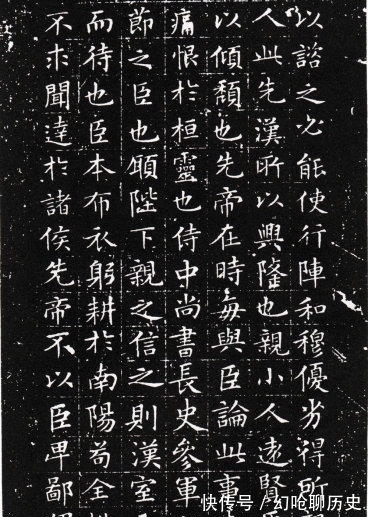 以諮之必能使行陣和穆優劣得所
人此先漢所以興隆也親小人遠賢
以傾頹也先帝在時每與臣論此事
痛恨於桓靈也侍中尚書長史參軍
節之臣也願陛下親之信之則漢室
而待也臣本布衣躬耕於南陽苟全
不求聞達於諸侯先帝不以臣卑鄙
快传号 / 幻呛聊历史